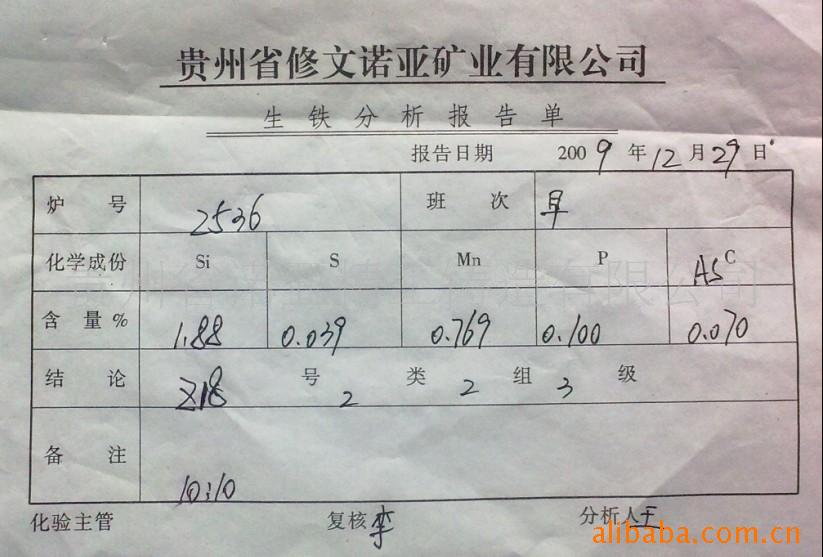 贵州省修文诺亚矿业有限公司
生铁分析报告单
报告日期 2009年12月29日
炉号 2536 班次 早
化学成份 Si S Mn P AS C
含量% 1.88 0.039 0.769 0.100 0.070
结论 Z18号2类2组3级
备注 10:10
化验主管 复核 李 分析人 王
alibaba.com.cn